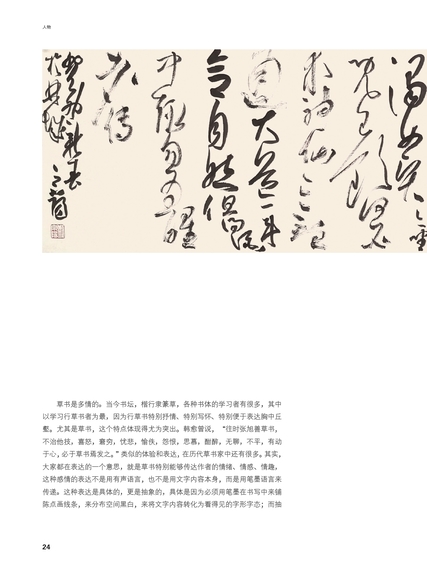 人物
濁如賢〻聖
既已飲何必
求神仙三杯
通大道一斗
合自然但得酒
中趣勿為醒
者傳
癸卯新春
草书是多情的。当今书坛，楷行隶篆草，各种书体的学习者有很多，其中
以学习行草书者为最，因为行草书特别抒情、特别写怀、特别便于表达胸中丘
壑。尤其是草书，这个特点体现得尤为突出。韩愈曾说，“往时张旭善草书，
不治他技。喜怒，窘穷，忧悲，愉佚，怨恨，思慕，酣醉，无聊，不平，有动
于心，必于草书焉发之。”类似的体验和表达，在历代草书家中还有很多。其实，
大家都在表达的一个意思，就是草书特别能够传达作者的情绪、情感、情趣，
这种感情的表达不是用有声语言，也不是用文字内容本身，而是用笔墨语言来
传递。这种表达是具体的，更是抽象的，具体是因为必须用笔墨在书写中来铺
陈点画线条，来分布空间黑白，来将文字内容转化为看得见的字形字态；而抽
24